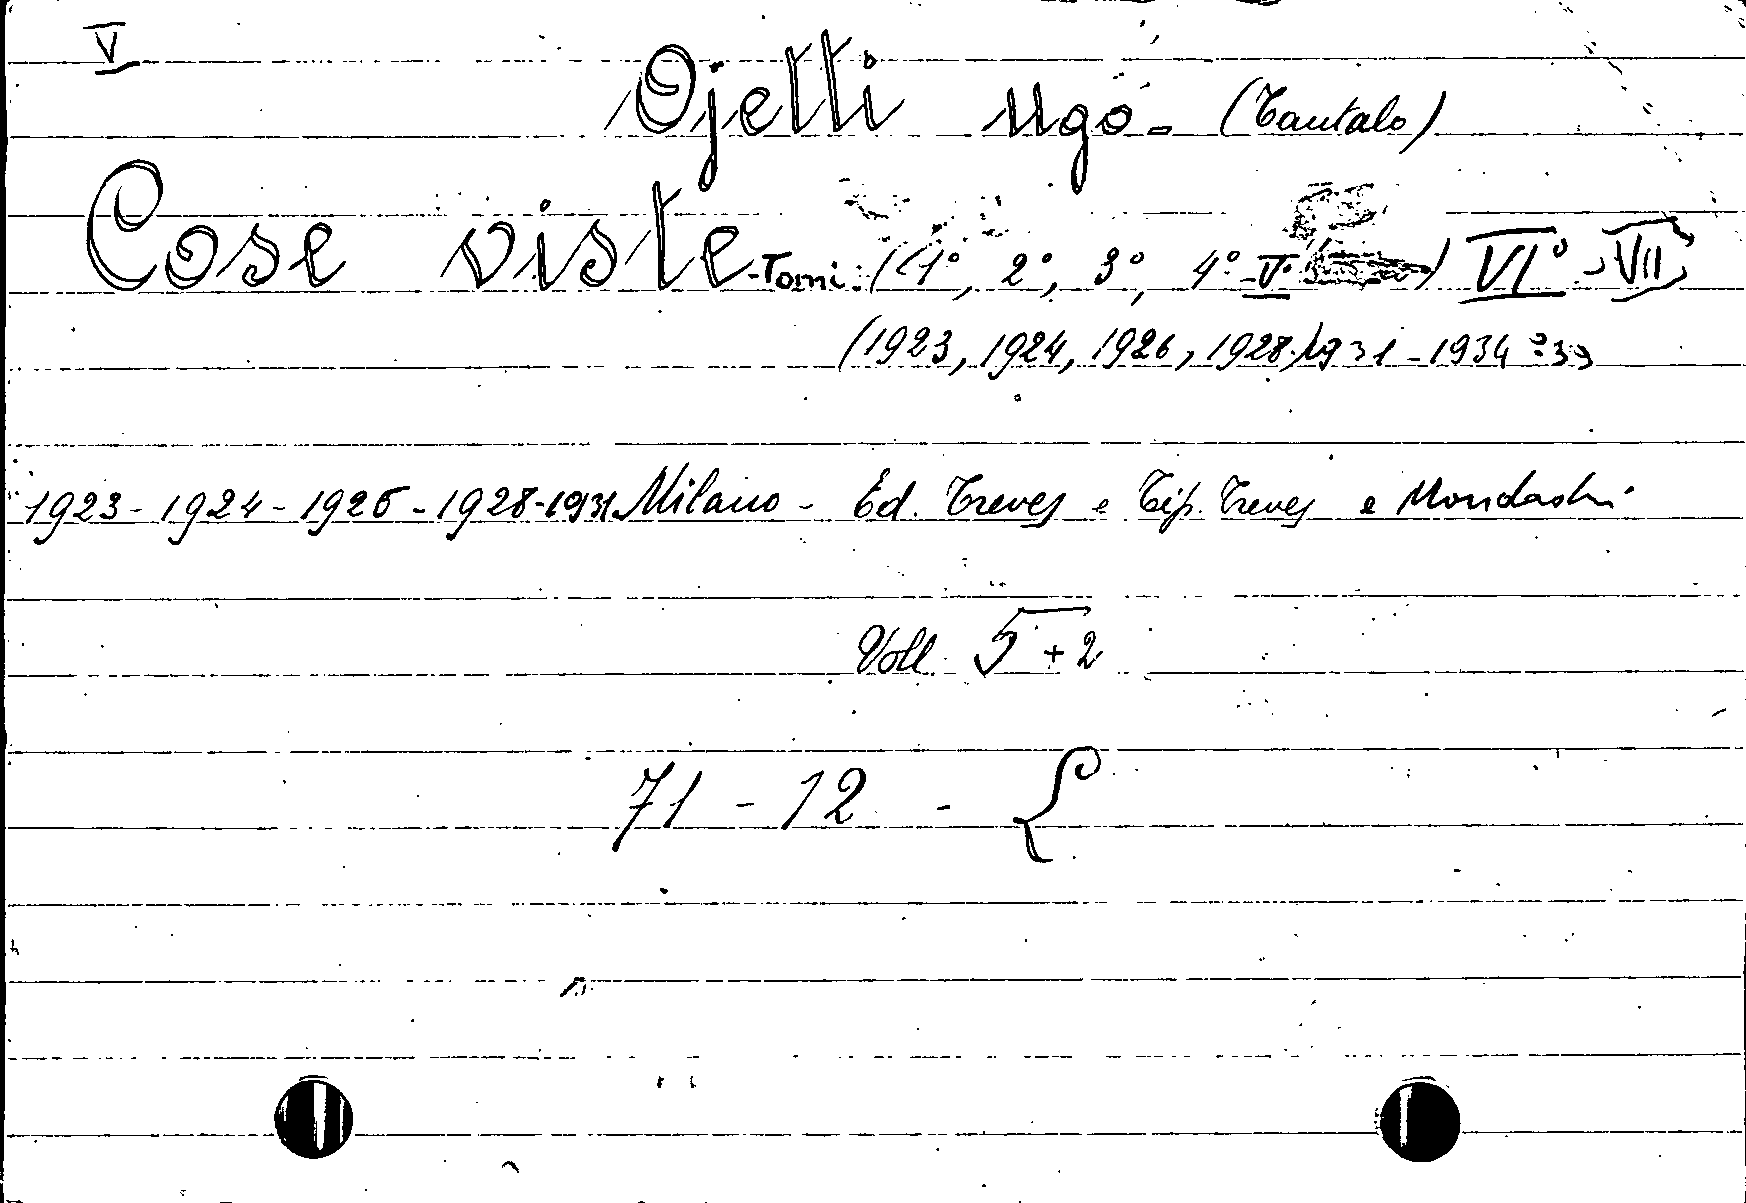 V
Ojetti Ugo - (Tantalo)
Cose viste - Tomi: (1°, 2°, 3°, 4° - V°) VI° - VII
(1923, 1924, 1926, 1928.) 1931 - 1934 = 39
1923 - 1924 - 1926 - 1928 - 1931 Milano - Ed. Treves e Tip. Treves e Mondadori
Voll. 5 + 2
71 - 12 -